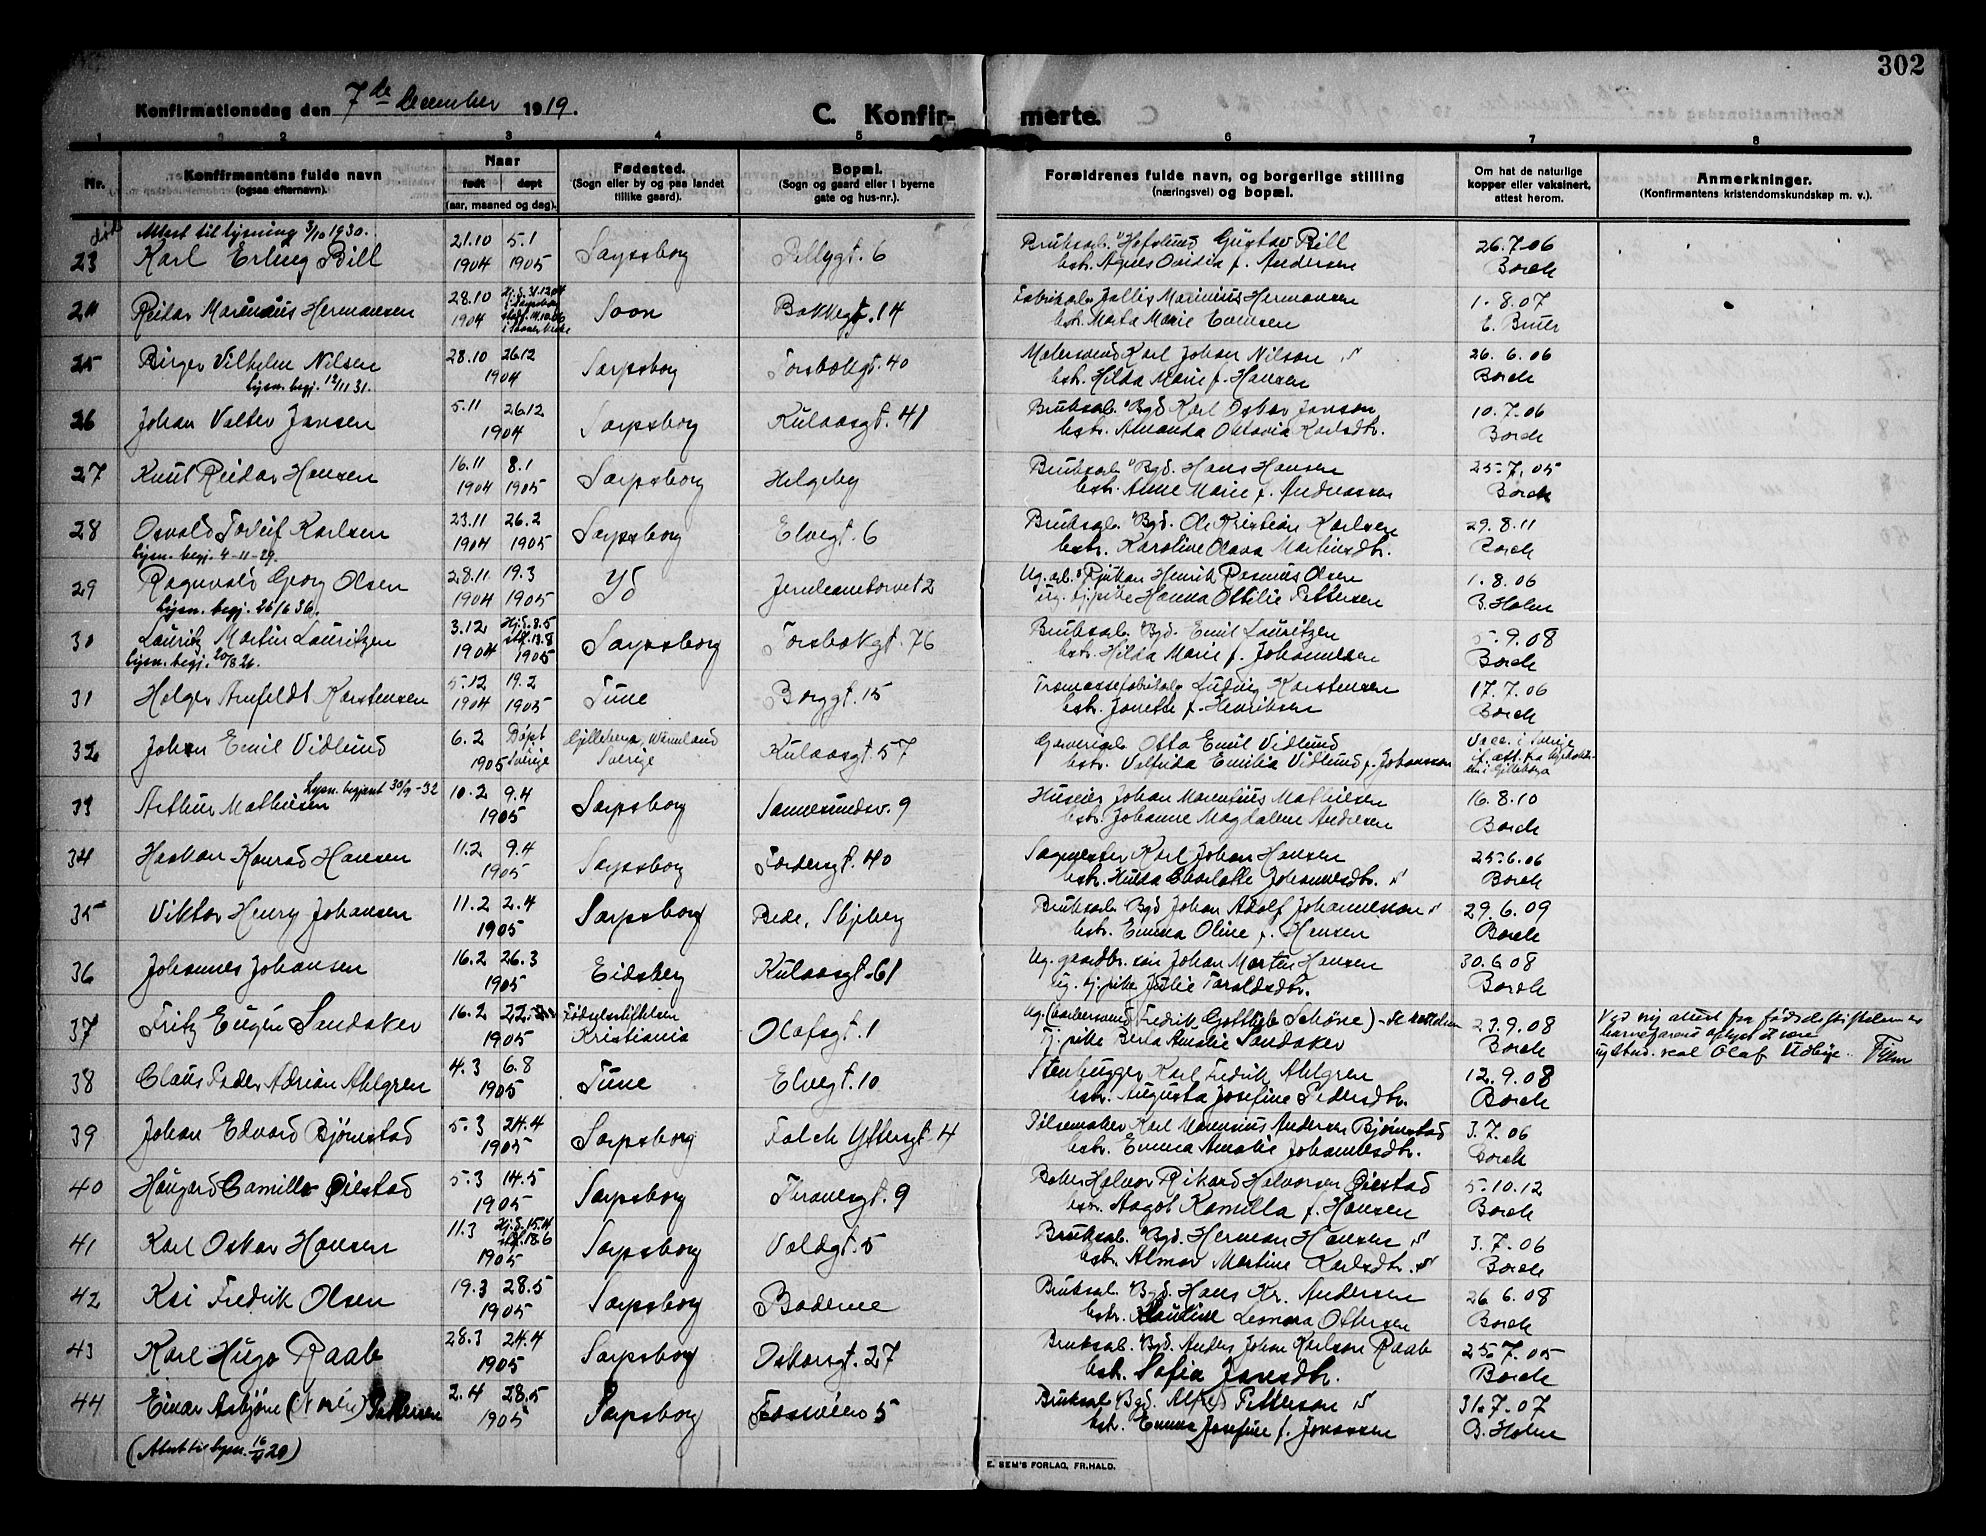 302
Konfirmationsdag den 7de December 1919.
C. Konfir- merte.
1 2 3 4 5 6 7 8
Nr.
Konfirmantens fulde navn
(ogsaa efternavn).
Naar
født døpt
(aar, maaned og dag).
Fødested.
(Sogn eller by og paa landet
tillike gaard).
Bopæl.
(Sogn og gaard eller i byerne
gate og hus-nr.).
Forældrenes fulde navn, og borgerlige stilling
(næringsvei) og bopæl.
Om hat de naturlige
kopper eller vaksinert,
attest herom.
Anmerkninger.
(Konfirmantens kristendomskundskap m. v.).
Attest til lysning 3/10 1930.
23 Karl Erling Bill 21.10 1904 5.1 1905 Sarpsborg Pellygt. 6 Bruksarb. Hafslund Gustav Bill 26.7.06
hstr. Agnes Ovidia f. Andersen Borch
24 Reidar Marinius Hermansen 28.10 1904 Hj.d. 31.12.04 Soon Bakkegt. 14 Fabrikarb. Jallis Marinius Hermansen 1.8.07
hstr. Marta Marie Evensen
25 Birger Vilhelm Nilsen 28.10 26.12 1904 Sarpsborg Torsbekkgt. 40 Malersvend Karl Johan Nilson 26.6.06
Lysn. begj. 12/11 31. hstr. Hilda Marie f. Hansen Borch
26 Johan Valter Jansen 5.11 26.12 1904 Sarpsborg Kulaasgt. 41 Bruksarb. Bgd Karl Oskar Janson 10.7.06
hstr. Amanda Oktavia Karlsdtr. Borch
27 Knut Reidar Hansen 16.11 1904 8.1 1905 Sarpsborg Helgeby Bruksarb. Bgd. Hans Hansen 25.7.05
hstr. Anne Marie f. Andreassen Borch
28 Osvald Torleif Karlsen 23.11 1904 26.2 1905 Sarpsborg Elvegt. 6 Bruksarb. Bgd. Ole Kristian Karlsen 29.8.11
Lysn. begj. 4-11-29. hstr. Karoline Olava Martinsdtr. Borch
29 Ragnvald Georg Olsen 28.11 1904 19.3 1905 Id Jernbanetorvet 2 Ug. arb. Rjukan Henrik Rasmus Olsen 1.8.06
Lysn. begj. 26/6 36. ug. tj.pike Hanna Ottilie Pettersen B. Holm
30 Lauritz Martin Lauritzen 3.12 1904 Hj.d. 8.5 stf. 13.8 1905 Sarpsborg Torsbekgt. 76 Bruksarb. Bgd. Emil Lauritzen 5.9.08
Lysn. begj. 20/8 26. hstr. Hilda Marie f. Johannesen Borch
31 Holger Arnfeldt Karstensen 5.12 1904 19.2 1905 Tune Borggt. 15 Træmassefabrikarb. Ludvig Karstensen 17.7.06
hstr. Janette f. Henriksen Borch
32 Johan Emil Vidlund 6.2 1905 Døpt Sverige Gillberga, Wärmland Sverige Kulaasgt. 57 Garveriarb. Otto Emil Vidlund Vacc. i Sverige
hstr. Valfrida Emilia Vidlund f. Johansson
33 Arthur Mathiesen Lysn. begjært 30/9-32 10.2 9.4 1905 Sarpsborg Sannesundsv. 9 Huseier Johan Marentius Mathiesen 16.8.10
hstr. Johanne Magdalene Andresen Borch
34 Haakon Konrad Hansen 11.2 9.4 1905 Sarpsborg Tordensgt. 40 Sagmester Karl Johan Hansen 25.6.06
hstr. Hulda Charlotte Johannesdtr. Borch
35 Viktor Henry Johansen 11.2 2.4 1905 Sarpsborg Bede, Skjeberg Bruksarb Bgd Johan Adolf Johanneson 29.6.09
hstr. Emma Oline f. Hansen Borch
36 Johannes Johansen 16.2 26.3 1905 Eidsberg Kulaasgt. 61 Ug. gaardbr. søn Johan Martin Hansen 30.6.08
ug. tj.pike Julie Taraldsdtr. Borch
37 Fritz Eugen Sandaker 16.2 1905 Fødselsstiftelsen Kristiania Olafsgt. 1 Ug. Fredrik Gottlieb Schöne) 23.9.08
tj. pike Berta Amalie Sandaker Borch
Ved ny attest fra fødselsstiftelsen er
barnefaren oplyst at være
Olaf Udbye. Finn
38 Claus Peder Adrian Ahlgren 4.3 6.8 1905 Tune Elvegt. 10 Stenhugger Karl Fredrik Ahlgren 12.9.08
hstr. Augusta Josefine Pedersdtr. Borch
39 Johan Edvard Bjørnstad 5.3 24.4 1905 Sarpsborg Falch Yttersgt. 4 Pølsemaker Karl Marenius Andersen Bjørnstad 3.7.06
hstr. Emma Amalie Johannesdtr. Borch
40 Haugard Camillo Øiestad 5.3 14.5 1905 Sarpsborg Thranesgt. 9 Baker Halvor Rikard Halvorsen Øiestad 5.10.12
hstr. Aagot Kamilla f. Hansen Borch
41 Karl Oskar Hansen 11.3 Hj.d. 15.4 stf. 18.6 1905 Sarpsborg Voldgt. 5 Bruksarb. Bgd. Herman Hansen 3.7.06
hstr. Almar Martine Karlsdtr. Borch
42 Kai Fredrik Olsen 19.3 28.5 1905 Sarpsborg Boderne Bruksarb. Bgd. Hans Kr. Andersen 26.6.08
hstr. Leonora Ottersen Borch
43 Karl Hugo Raab 28.3 24.4 1905 Sarpsborg Oskarsgt. 27 Bruksarb. Bgd. Anders Johan Karlson Raab 25.7.05
hstr. Sofia Jansdtr. Borch
44 Einar Asbjørn (Martin) Pettersen 2.4 28.5 1905 Sarpsborg 5 Bruksarb Bgd. Alfred Petterson 31.7.07
hstr. Emma Josefine f. Jonassen B. Holm
(Attest til lysn. 16/4 20)
E. SEM'S FORLAG, FR.HALD.